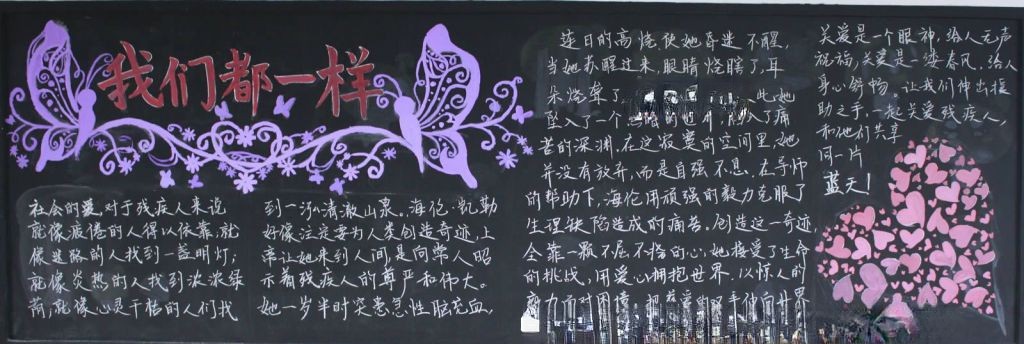 我们都一样
社会的爱对于残疾人来说
就像疲惫的人得以依靠,就
像迷路的人找到一盏明灯;
就像炎热的人找到浓浓绿
荫;就像心灵干枯的人们找
到一汤清澈山泉。海伦·凯勒
好像注定要为人类创造奇迹,上
帝让她来到人间是向常人昭
示着残疾人的尊严和伟大。
她一岁半时突患急性脑充血,
连日的高烧使她昏迷不醒,
当她苏醒过来,眼睛烧瞎了,耳
朵烧聋了 此她
坠入了一个黑暗的 入了痛
苦的深渊,在这寂寞的空间里,她
并没有放弃,而是自强不息,在导师
的帮助下,海伦用顽强的毅力克服了
生理缺陷造成的痛苦。创造这一奇迹
全靠一颗不屈不挠的心,她接受了生命
的挑战,用爱心拥抱世界,以惊人的
毅力面对困境 伸向世界
关爱是一个眼神,给人无声
祝福,关爱是一缕春风,给人
身心舒畅。让我们伸出援
助之手,一起关爱残疾人,
和他们共享
同一片
蓝天!